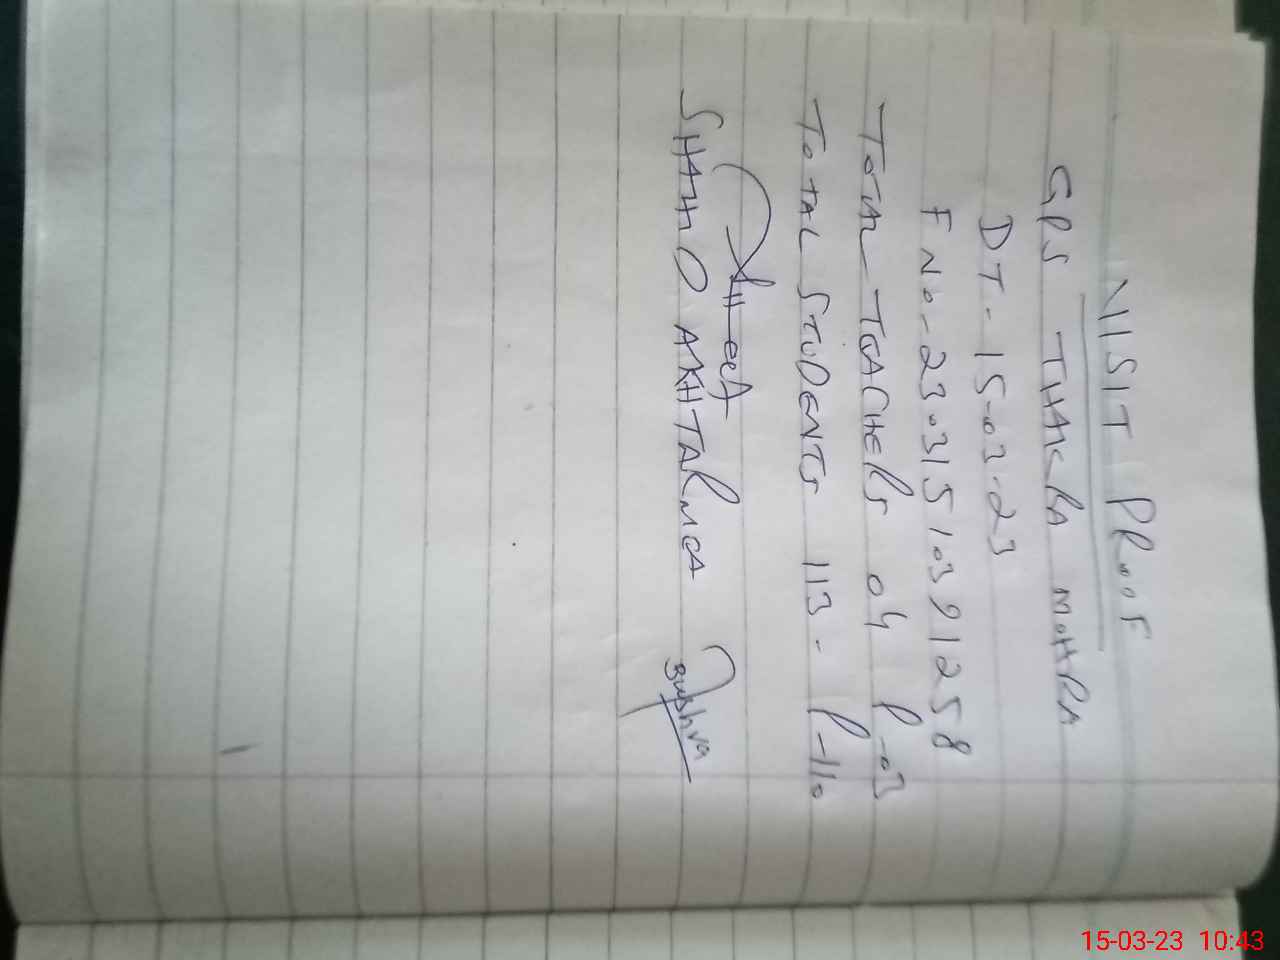 VISIT PROOF
GPS THAKRA MOHRA
DT-15-03-23
F No-23.031510391258
TOTAL TEACHERS 04 P-03
TOTAL STUDENTS 113- P-110
SHAHO AKHTAR
Bushra
15-03-23 10:43